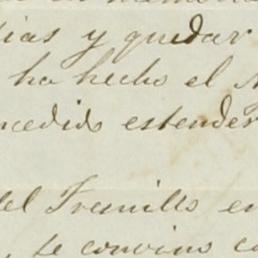 ias y quedar
ha hecho el
ncedido estender
del Trunillo en
, se convino co